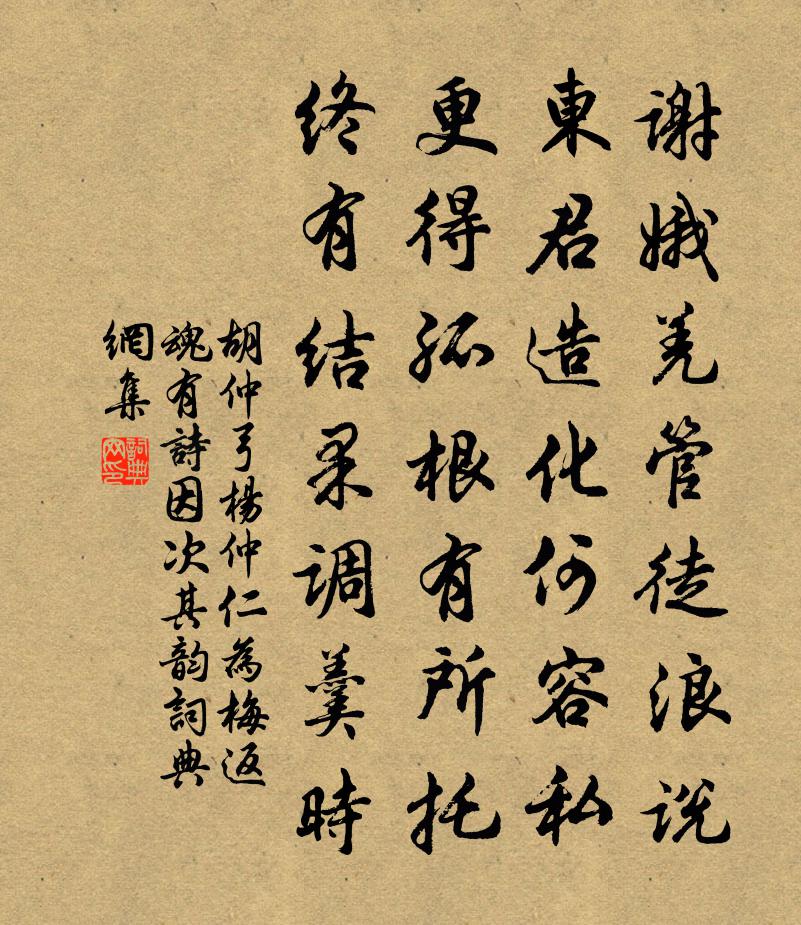 謝娥羌管徒浪説
東君造化何容私
更得孤根有所托
終有结果調羹時
胡仲弓楊仲仁為梅返
魂有詩因次其韵詞典
網集
詞典
网印